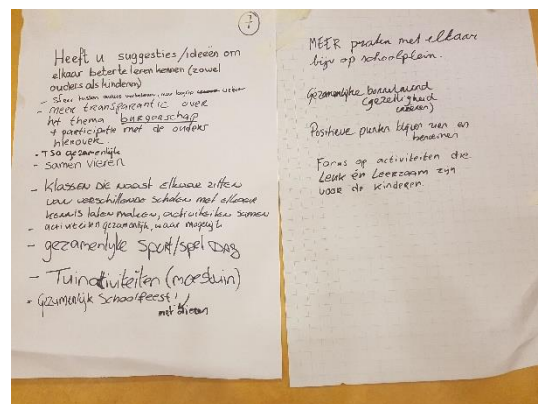 7/6
Heeft u suggesties/ideeën om
elkaar beter te leren kennen (zowel
ouders als kinderen)
- Sfeer tussen ouders verbeteren, meer begrip
- meer transparantie over
het thema burgerschap
+ participatie met de ouders
hierover.
- TSO gezamenlijk
- samen vieren
- Klassen die naast elkaar zitten
van verschillende scholen met elkaar
kennis laten maken, activiteiten samen
- activiteiten gezamenlijk, waar mogelijk
- gezamenlijke Sport/spel Dag
- Tuinactiviteiten (moestuin)
- Gezamenlijk Schoolfeest!
met dieren
MEER praten met elkaar
bijv op schoolplein.
Gezamenlijke
(gezelligheid
creëren)
Positieve punten blijven zien en
benoemen
Focus op activiteiten die
Leuk én Leerzaam zijn
voor de kinderen.